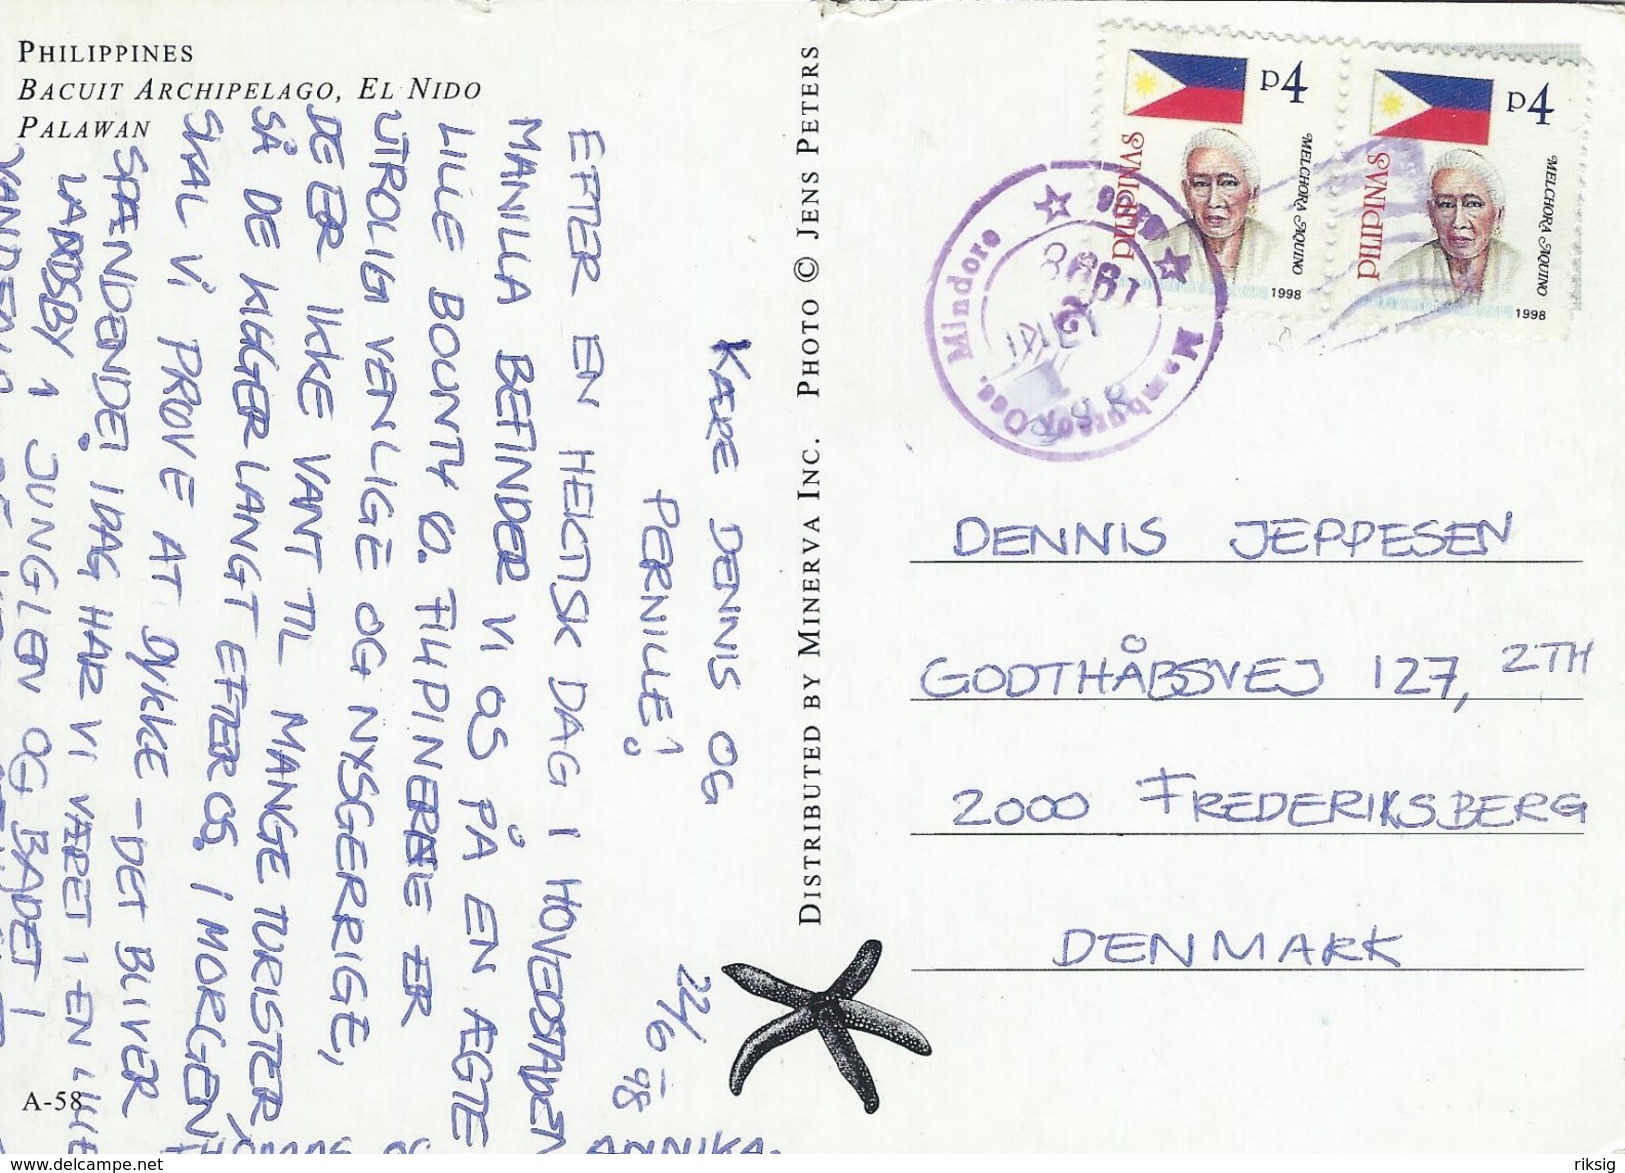 PHILIPPINES
BACUIT ARCHIPELAGO, EL NIDO
PALAWAN
KÆRE DENNIS OG
PERNILLE!
22/6-98
EFTER EN HEKTISK DAG I HOVEDSTADEN
MANILLA BEFINDER VI OS PÅ EN ÆGTE
LILLE BOUNTY Ø. FILIPINERNE ER
UTROLIG VENLIGE OG NYSGERRIGE,
DE ER IKKE VANT TIL MANGE TURISTER
SÅ DE KIGGER LANGT EFTER OS. I MORGEN
SKAL VI PRØVE AT DYKKE - DET BLIVER
SPÆNDENDE! IDAG HAR VI VÆRET I EN LILLE
LANDSBY I JUNGLEN OG BADET I
THOMAS OG ANNIKA.
A-58
DISTRIBUTED BY MINERVA INC. PHOTO © JENS PETERS
PILIPINAS
P4
MELCHORA AQUINO
1998
PILIPINAS
P4
MELCHORA AQUINO
1998
Mamburao, Occ. Mindoro
1998
DENNIS JEPPESEN
GODTHÅBSVEJ 127, 2TH
2000 FREDERIKSBERG
DENMARK
riksig